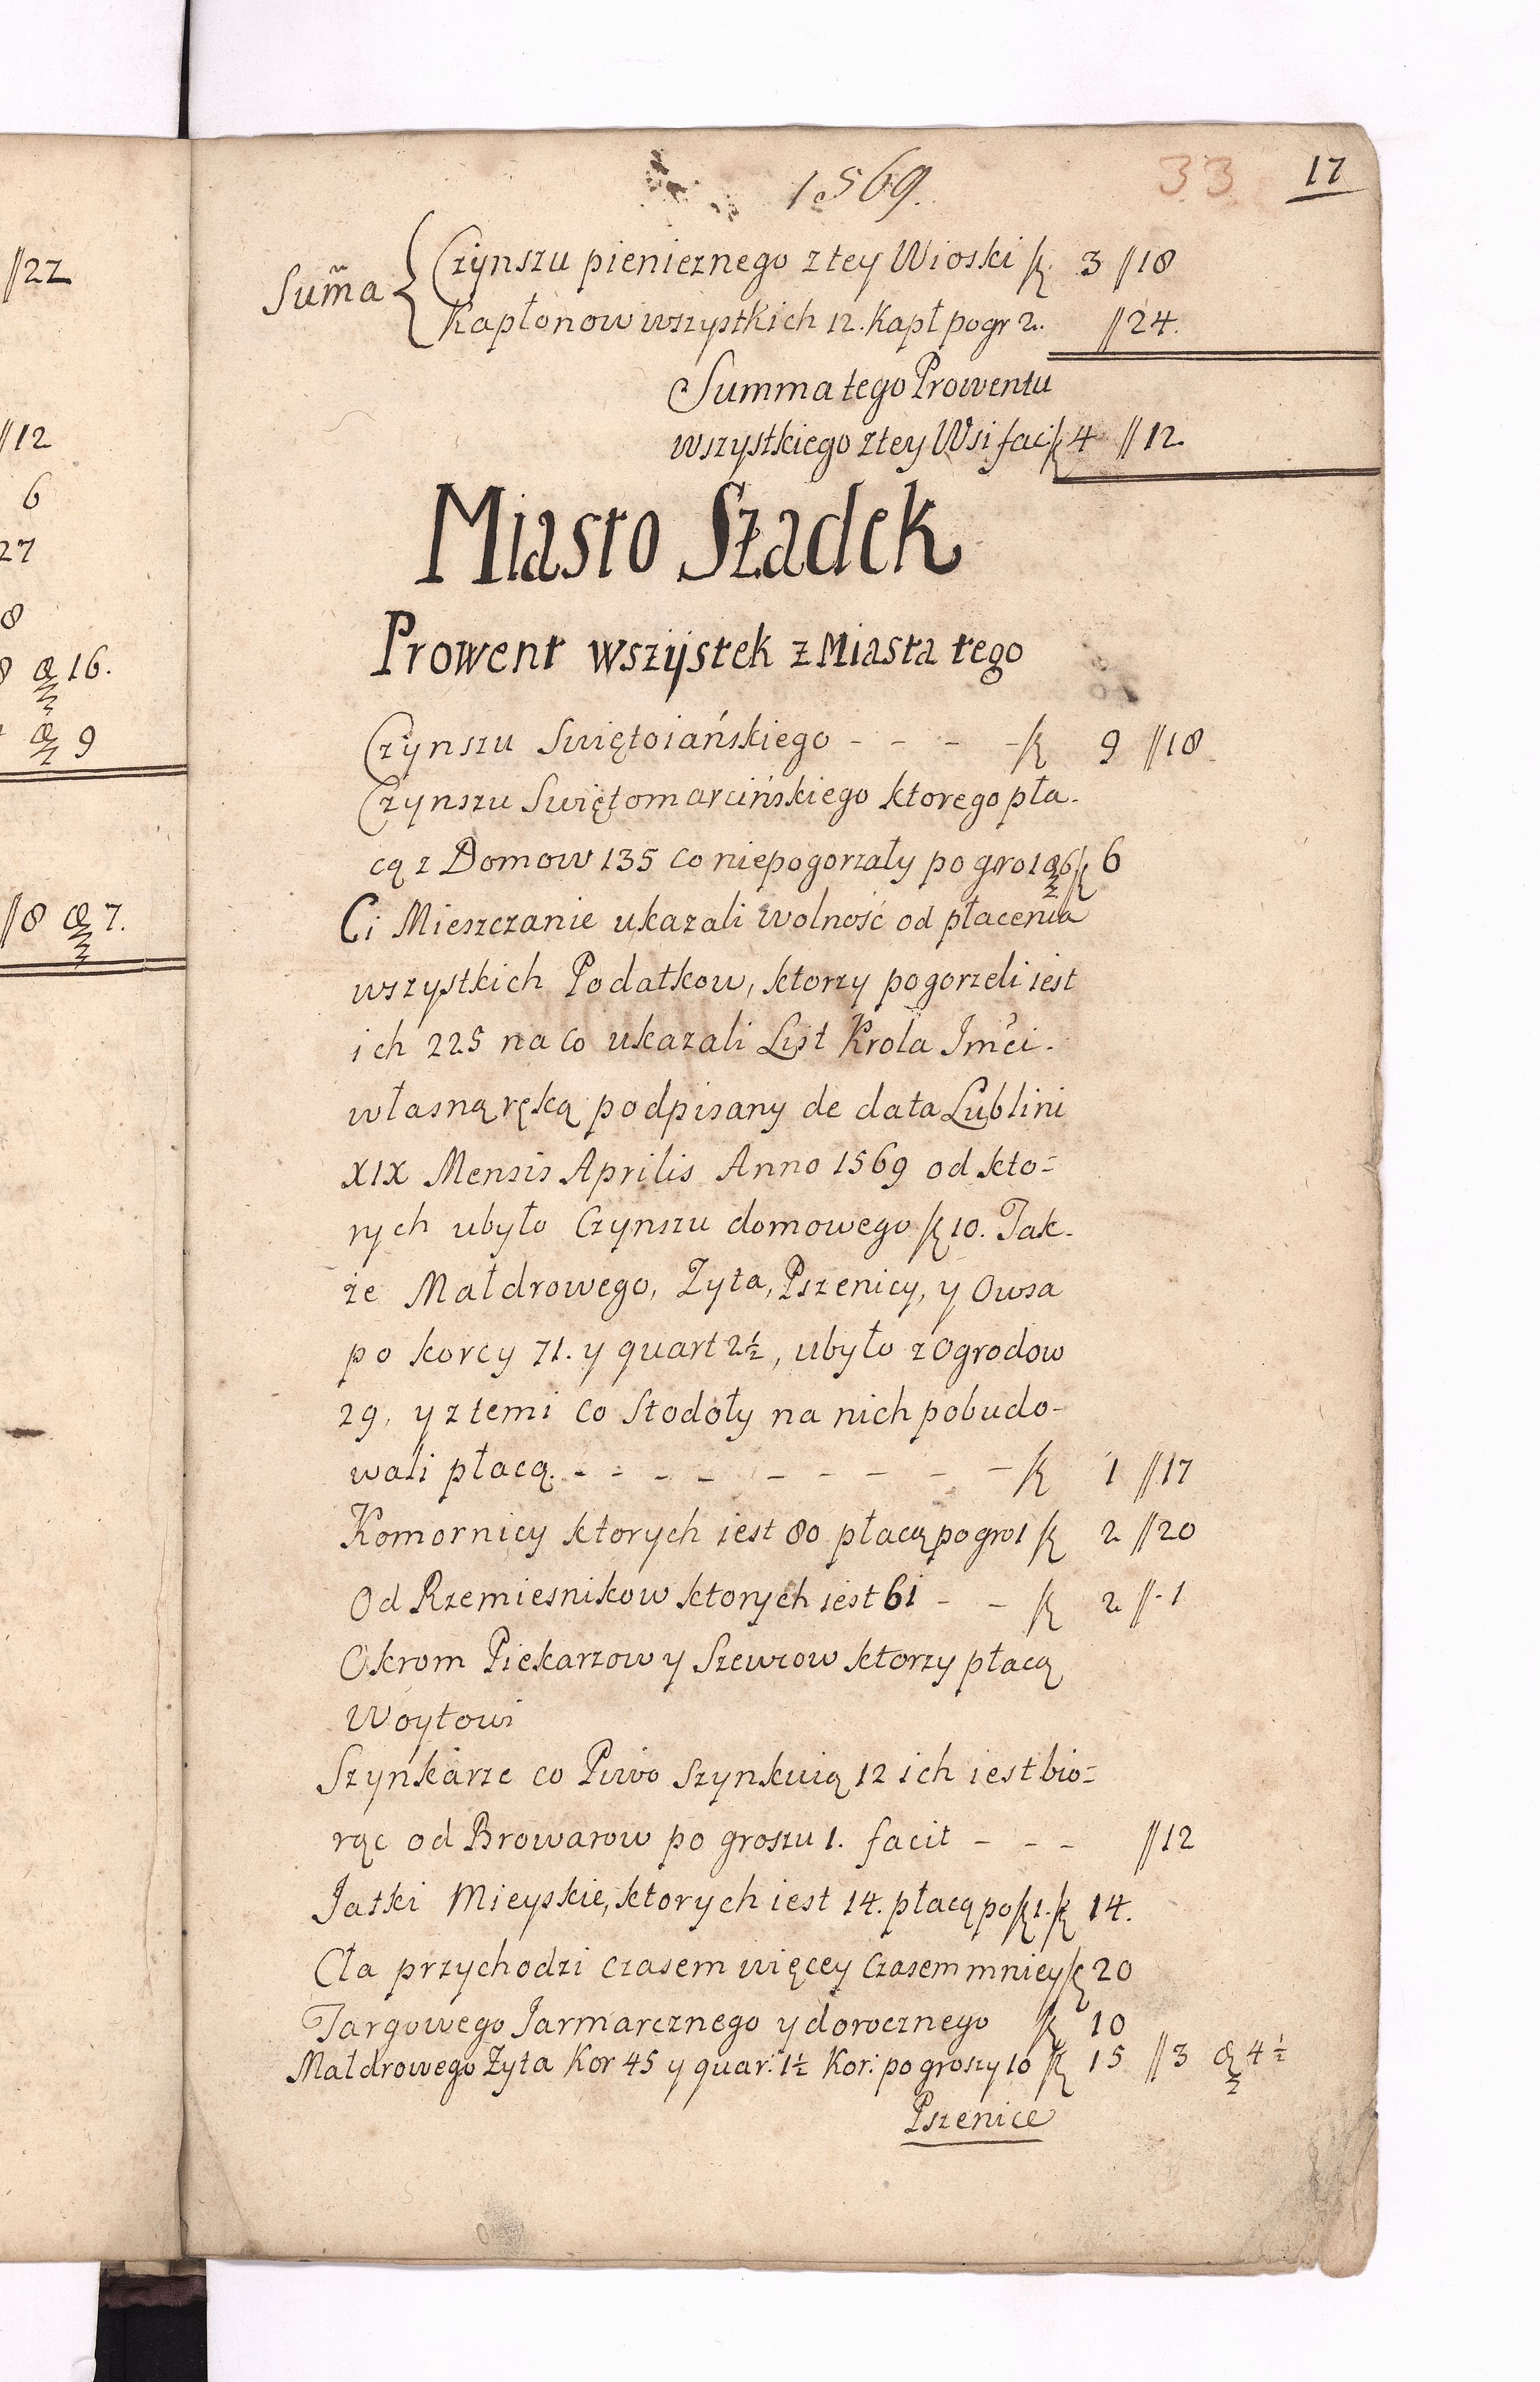 //22
//12
6
27
8
8 ꝗ 16.
ꝗ 9
//8 ꝗ 7.
1569.
33
17
Sum̃a { Czynszu pienieznego z tey Wioski ƶ 3 //18
Kapłonow wszystkich 12. Kapł po gr 2. //24.
Summa tego Prowentu
wszystkiego z tey Wsi faci ƶ 4 //12.
Miasto Szadek
Prowent wszystek z Miasta tego
Czynszu Swiętoiańskiego - - - - ƶ 9 //18
Czynszu Swiętomarcińskiego ktorego pła-
cą z Domow 135 co niepogorzały po gro 1 ꝗ6 ƶ 6
Ci Mieszczanie ukazali wolność od płacenia
wszystkich Podatkow, ktorzy pogorzeli iest
ich 225 na co ukazali List Krola Jmći.
własną ręką podpisany de data Lublini
XIX Mensis Aprilis Anno 1569 od kto=
rych ubyło Czynszu domowego ƶ 10. Tak-
że Małdrowego, Zyta, Pszenicy, y Owsa
po korcy 71. y quart 2½, ubyło z Ogrodow
29, y z temi co Stodoły na nich pobudo-
wali płacą. - - - - - - - - - ƶ 1 //17
Komornicy ktorych iest 80 płacą po gro 1 ƶ 2 //20
Od Rzemiesnikow ktorych iest 61 - - ƶ 2 //-1
Okrom Piekarzow y Szewcow ktorzy płacą
Woytowi
Szynkarze co Piwo Szynkuią 12 ich iest bio=
rąc od Browarow po groszu 1. facit - - - //12
Jatki Mieyskie, ktorych iest 14. płacą po ƶ 1. ƶ 14.
Cła przychodzi czasem więcey czasem mniey ƶ 20
Targowego Jarmarcznego y dorocznego ƶ 10
Małdrowego Zyta Kor 45 y quar: 1½ Kor: po groszy 10 ƶ 15 //3 ꝗ 4½
Pszenice